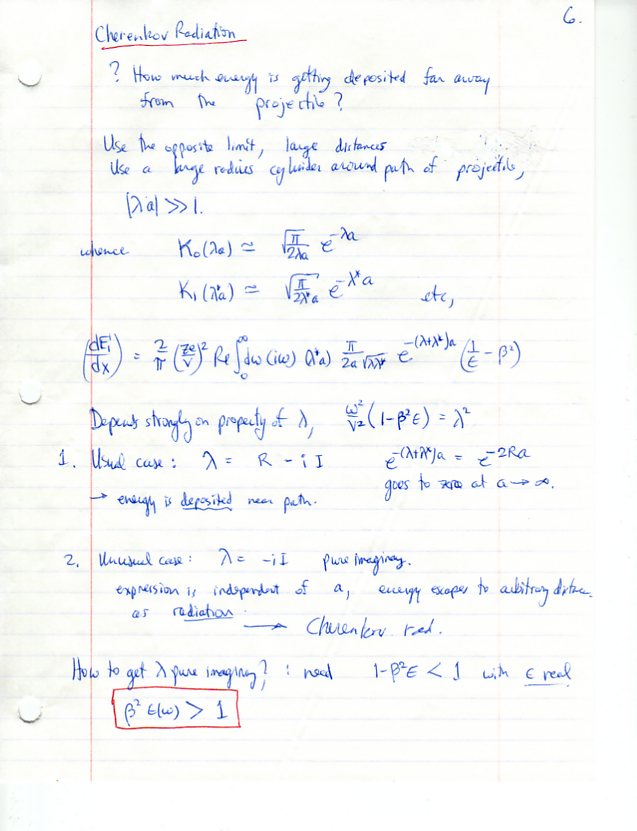 6.
Cherenkov Radiation
? How much energy is getting deposited far away
from the projectile ?
Use the opposite limit, large distances
Use a large radius cylinder around path of projectile,
|λa| ≫ 1.
whence K₀(λa) ≃ √(π/2λa) e^{-λa}
K₁(λ*a) ≃ √(π/2λ*a) e^{-λ*a} etc,
(dE/dx) = 2/π (ze/v)² Re ∫₀^∞ dω (iω) (λ*a) π/(2a√(λλ*)) e^{-(λ+λ*)a} (1/ε - β²)
Depends strongly on property of λ, ω²/v² (1-β²ε) = λ²
1. Usual case : λ = R - i I e^{-(λ+λ*)a} = e^{-2Ra}
→ energy is deposited near path. goes to zero at a → ∞.
2. Unusual case : λ = -iI pure imaginary.
expression is independent of a, energy escapes to arbitrary distance
as radiation. → Cherenkov rad.
How to get λ pure imaginary? : need 1-β²ε < 1 with ε real
β² ε(ω) > 1